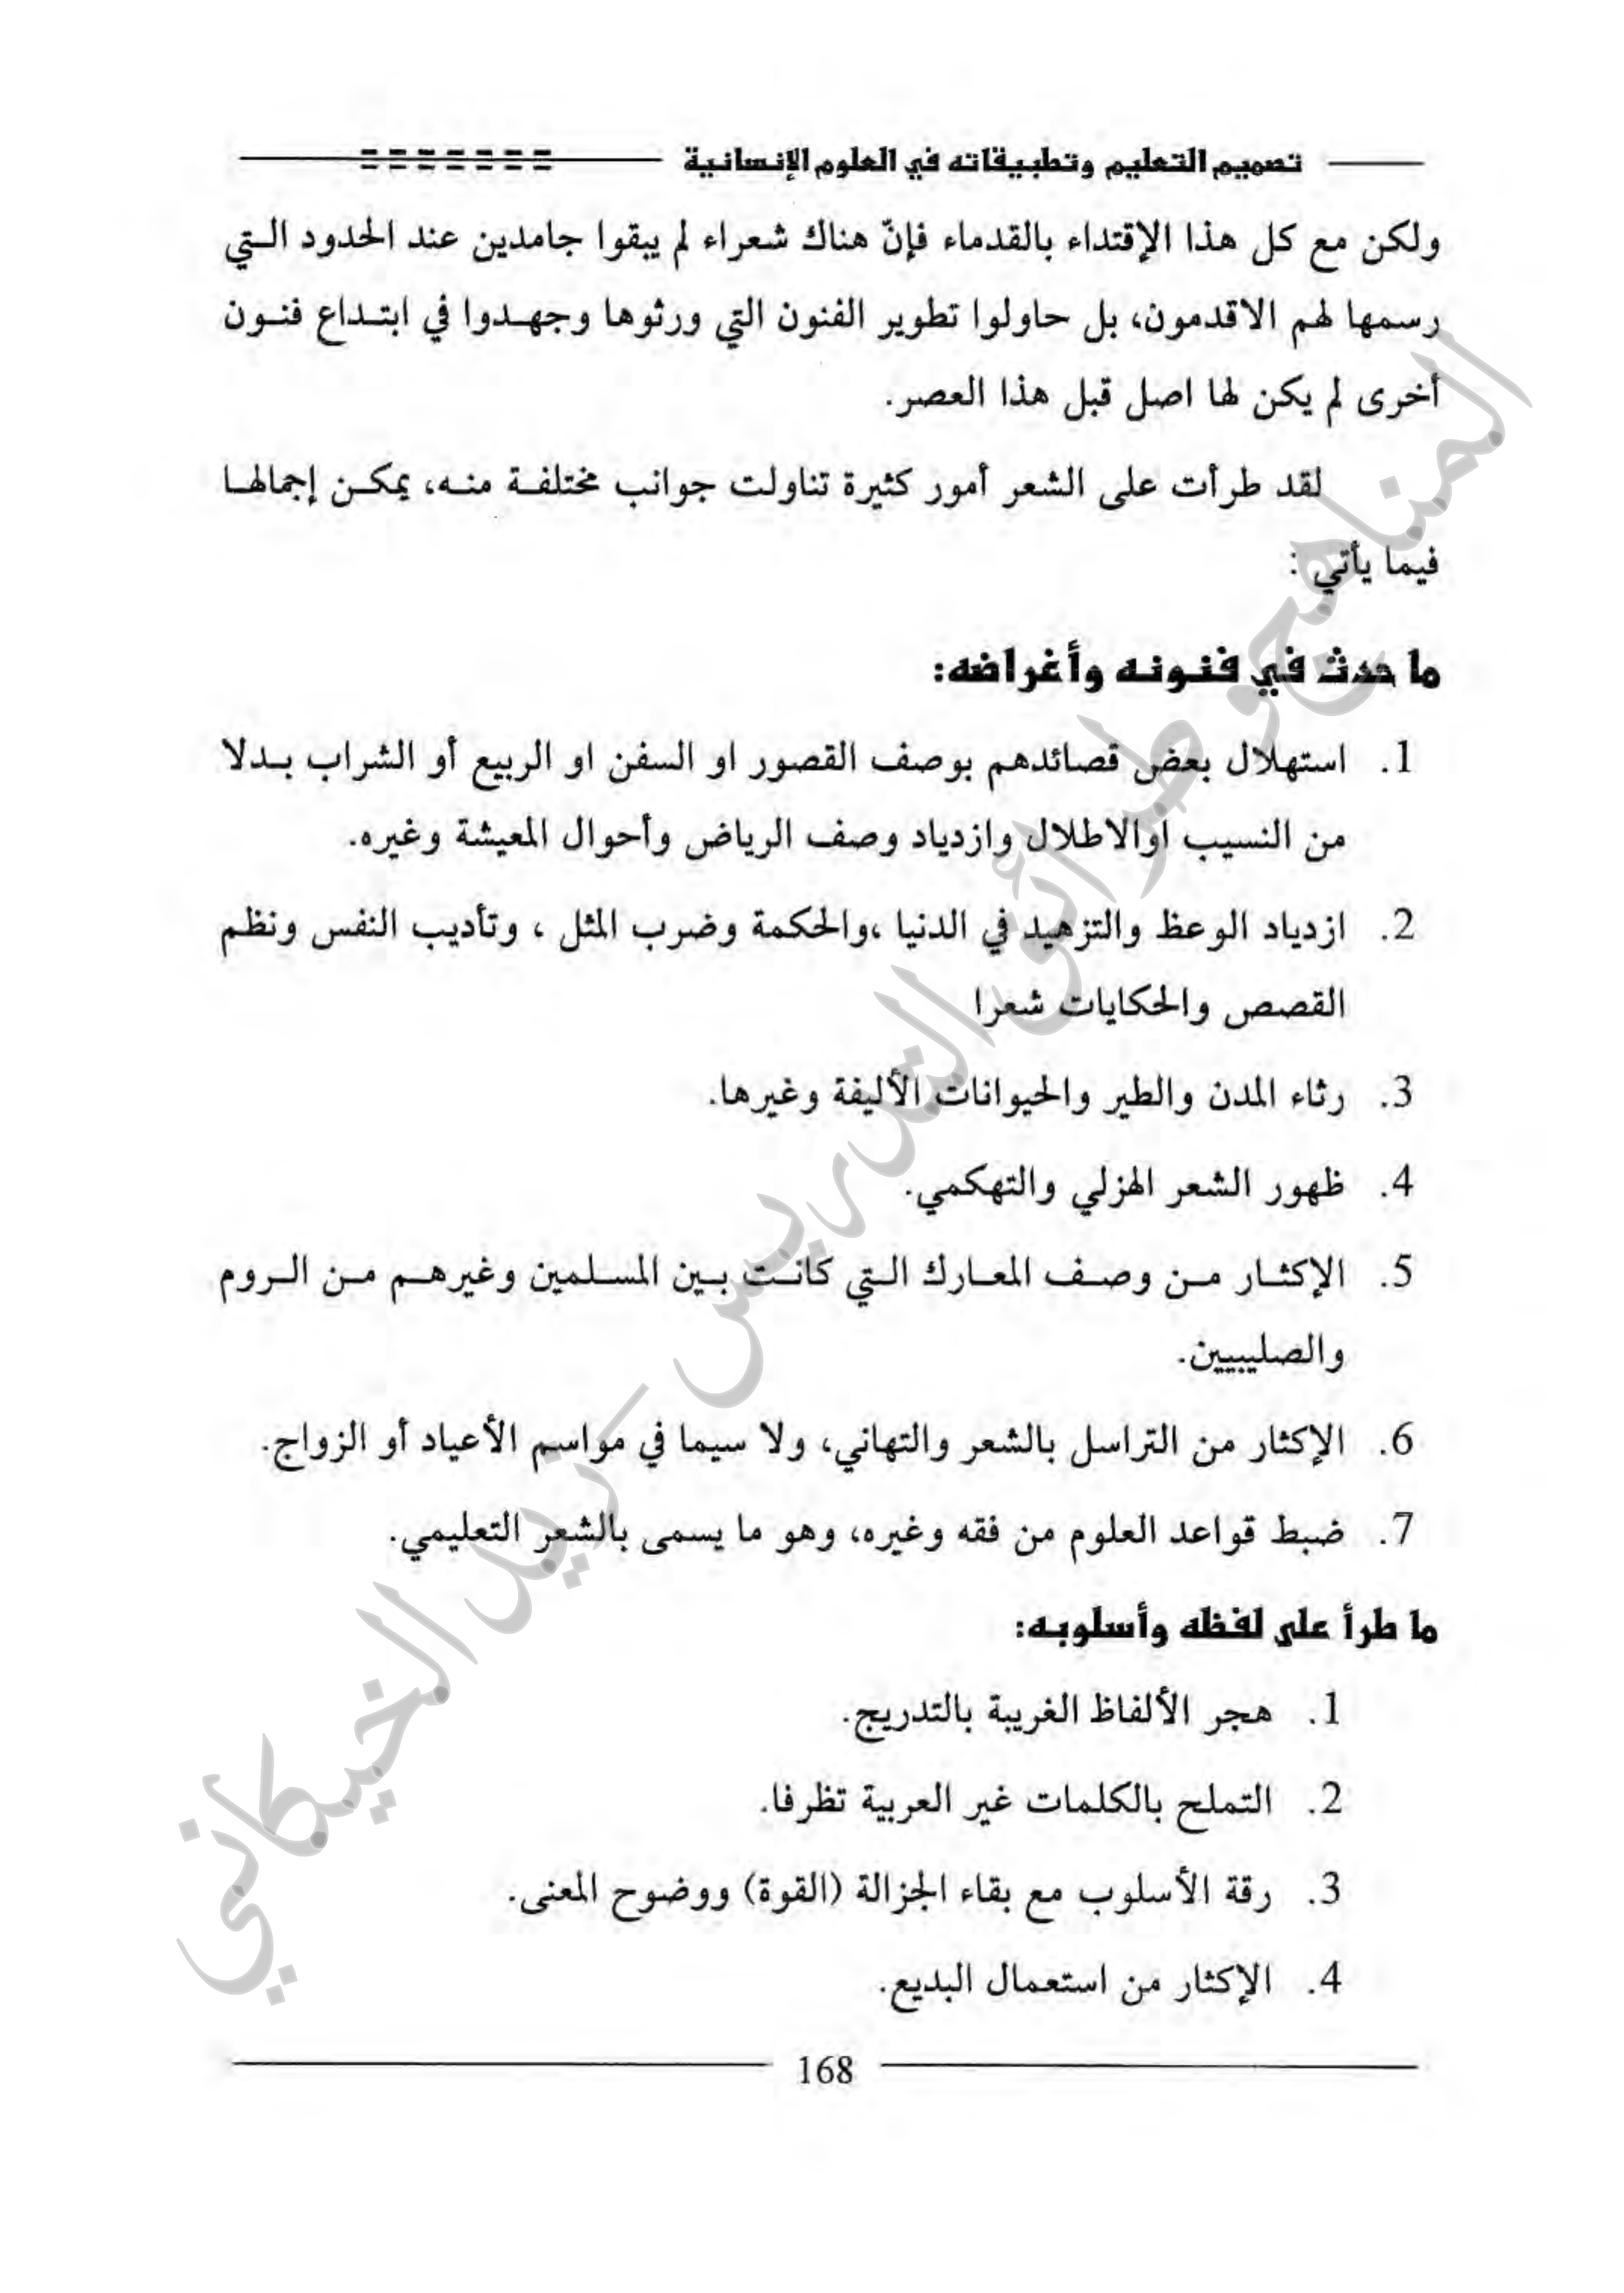 تصميم التعليم وتطبيقاته في العلوم الإنسانية
ولكن مع كل هذا الإقتداء بالقدماء فإنّ هناك شعراء لم يبقوا جامدين عند الحدود التي
رسمها لهم الاقدمون، بل حاولوا تطوير الفنون التي ورثوها وجهدوا في ابتداع فنون
أخرى لم يكن لها اصل قبل هذا العصر.
لقد طرأت على الشعر أمور كثيرة تناولت جوانب مختلفة منه، يمكن إجمالها
فيما يأتي :
ما حدث في فنونه وأغراضه:
1. استهلال بعض قصائدهم بوصف القصور او السفن او الربيع أو الشراب بدلا
من النسيب اوالاطلال وازدياد وصف الرياض وأحوال المعيشة وغيره.
2. ازدياد الوعظ والتزهيد في الدنيا ،والحكمة وضرب المثل ، وتأديب النفس ونظم
القصص والحكايات شعرا
3. رثاء المدن والطير والحيوانات الأليفة وغيرها.
4. ظهور الشعر الهزلي والتهكمي.
5. الإكثار من وصف المعارك التي كانت بين المسلمين وغيرهم من الروم
والصليبيين.
6. الإكثار من التراسل بالشعر والتهاني، ولا سيما في مواسم الأعياد أو الزواج.
7. ضبط قواعد العلوم من فقه وغيره، وهو ما يسمى بالشعر التعليمي.
ما طرأ على لفظه وأسلوبه:
1. هجر الألفاظ الغريبة بالتدريج.
2. التملح بالكلمات غير العربية تظرفا.
3. رقة الأسلوب مع بقاء الجزالة (القوة) ووضوح المعنى.
4. الإكثار من استعمال البديع.
168
المناهج وطرائق التدريس - زيد الخيكاني